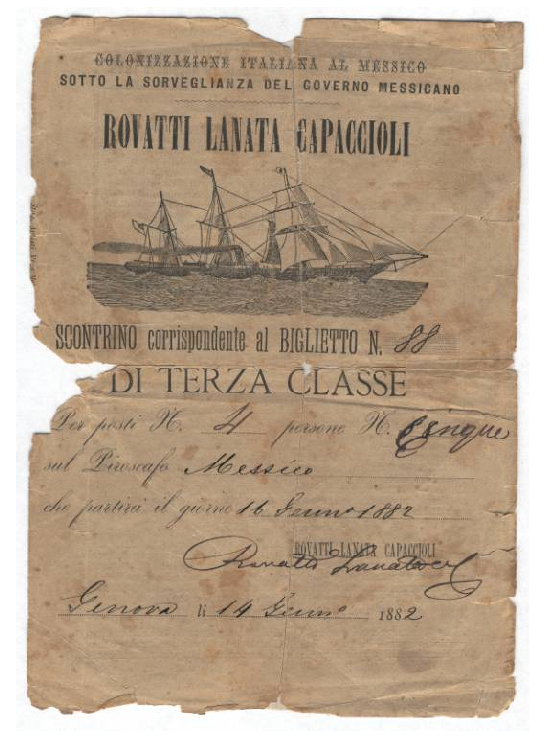 COLONIZZAZIONE ITALIANA AL MESSICO
SOTTO LA SORVEGLIANZA DEL GOVERNO MESSICANO
ROVATTI LANATA CAPACCIOLI
SCONTRINO corrispondente al BIGLIETTO N. 88
DI TERZA CLASSE
Per posti N. 4 persone N. Cinque
sul Piroscafo Messico
che partirà il giorno 16 1882
ROVATTI LANATA CAPACCIOLI
Rovatti Lanata
Genova li 14 1882